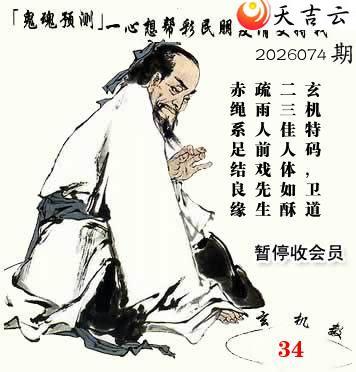 天吉云
「鬼魂预测」一心想帮彩民朋
2026074期
玄机特码，卫道
二三佳人体如酥
疏雨人前戏先生
赤绳系足结良缘
暂停收会员
玄机
34